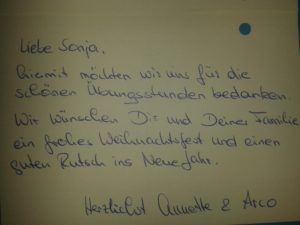 Liebe Sonja,
hiermit möchten wir uns für die
schönen Übungsstunden bedanken.
Wir wünschen Dir und Deiner Familie
ein frohes Weihnachtsfest und einen
guten Rutsch ins Neue Jahr.
Herzlichst Annette & Arco